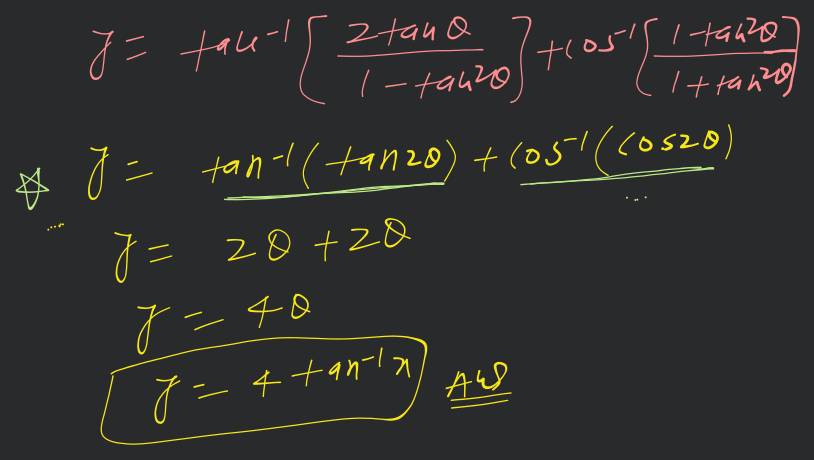 y = tan⁻¹[2tanθ / 1 - tan²θ] + cos⁻¹[1 - tan²θ / 1 + tan²θ]
y = tan⁻¹(tan2θ) + cos⁻¹(cos2θ)
y = 2θ + 2θ
y = 4θ
y = 4 tan⁻¹x Ans